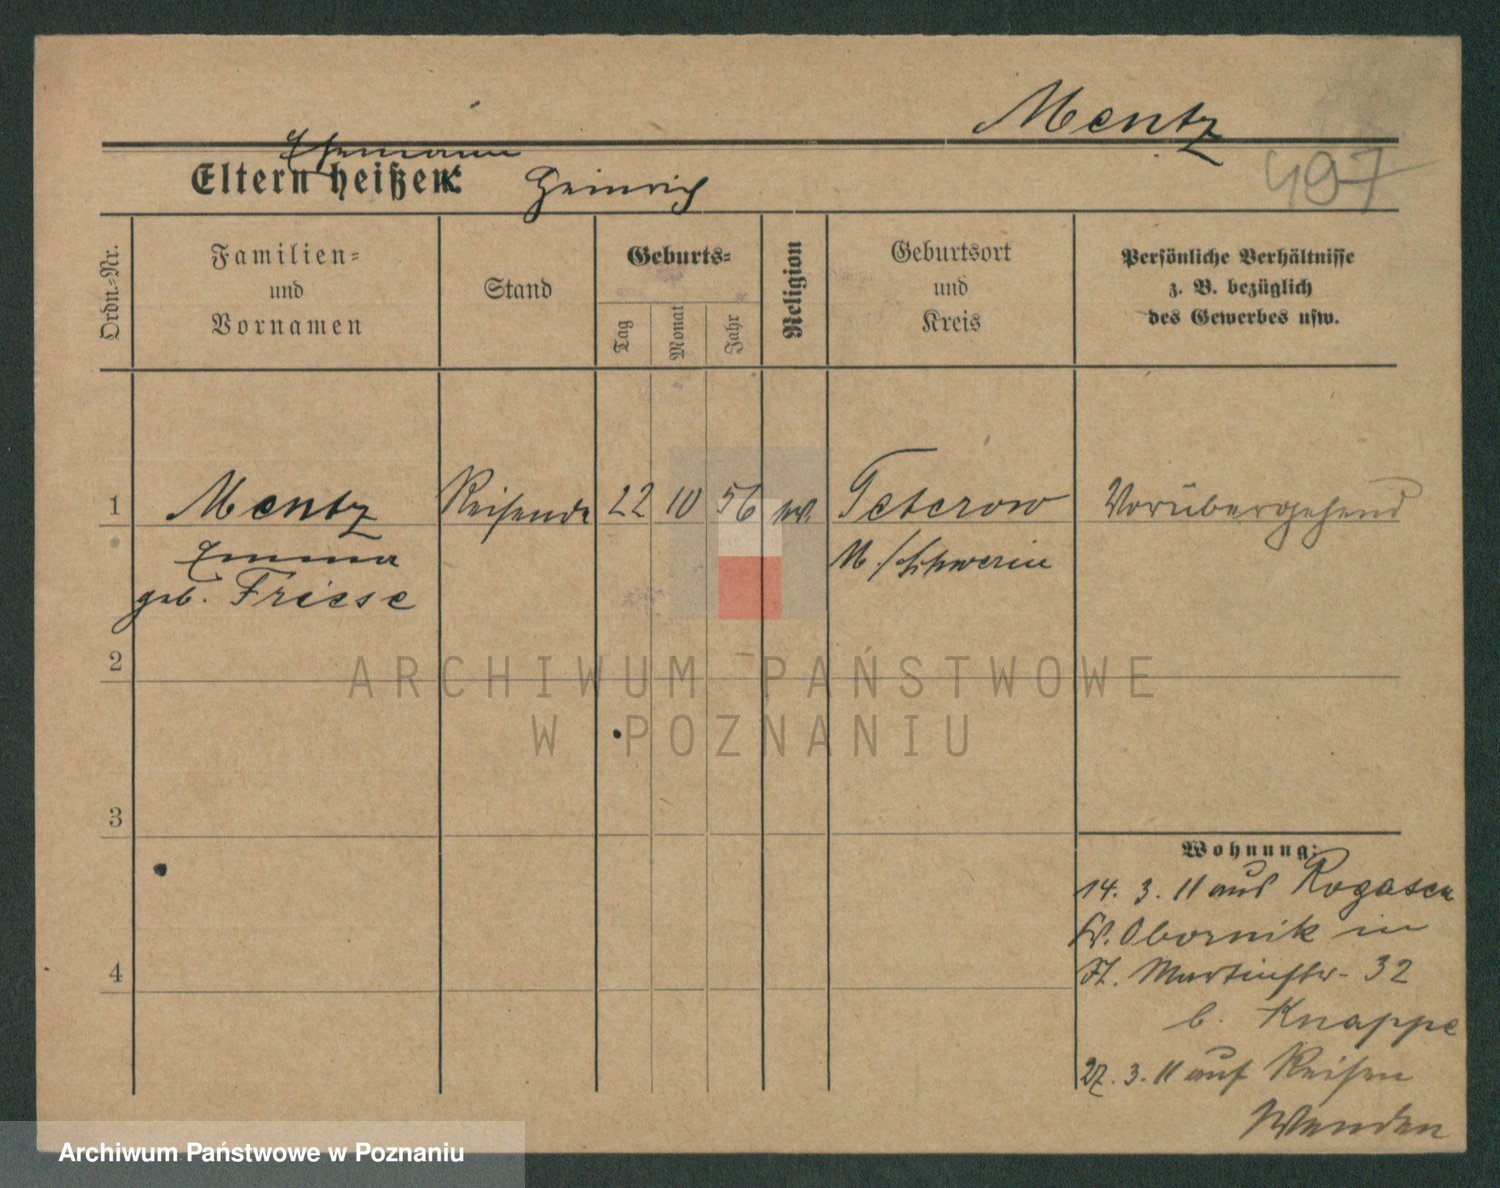 Mentz
497
Ehemann
Eltern heißen: Heinrich
Ordn.-Nr.
Familien-
und
Vornamen
Stand
Geburts-
Tag
Monat
Jahr
Religion
Geburtsort
und
Kreis
Persönliche Verhältnisse
z. B. bezüglich
des Gewerbes usw.
1 Mentz Reisende 22 10 56 ev. Teterow Vorübergehend
Emma M./Schwerin
geb. Friese
2
3
4
Wohnung:
14. 3. 11 aus Rogasen
Kr. Obornik in
St. Martinstr. 32
b. Knappe
27. 3. 11 auf Reisen
ARCHIWUM PAŃSTWOWE
W POZNANIU
Archiwum Państwowe w Poznaniu